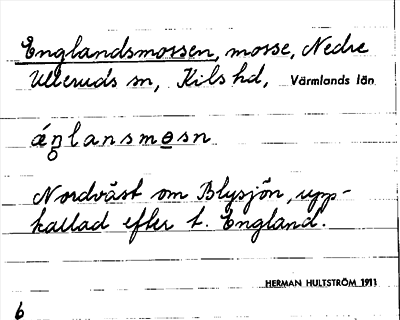 Englandsmossen, mosse, Nedre
Ulleruds sn, Kils hd, Värmlands län
áŋ̥lansmo̲sn
Nordväst om Blysjön, upp-
kallad efter t. England.
HERMAN HULTSTRÖM 1911
6